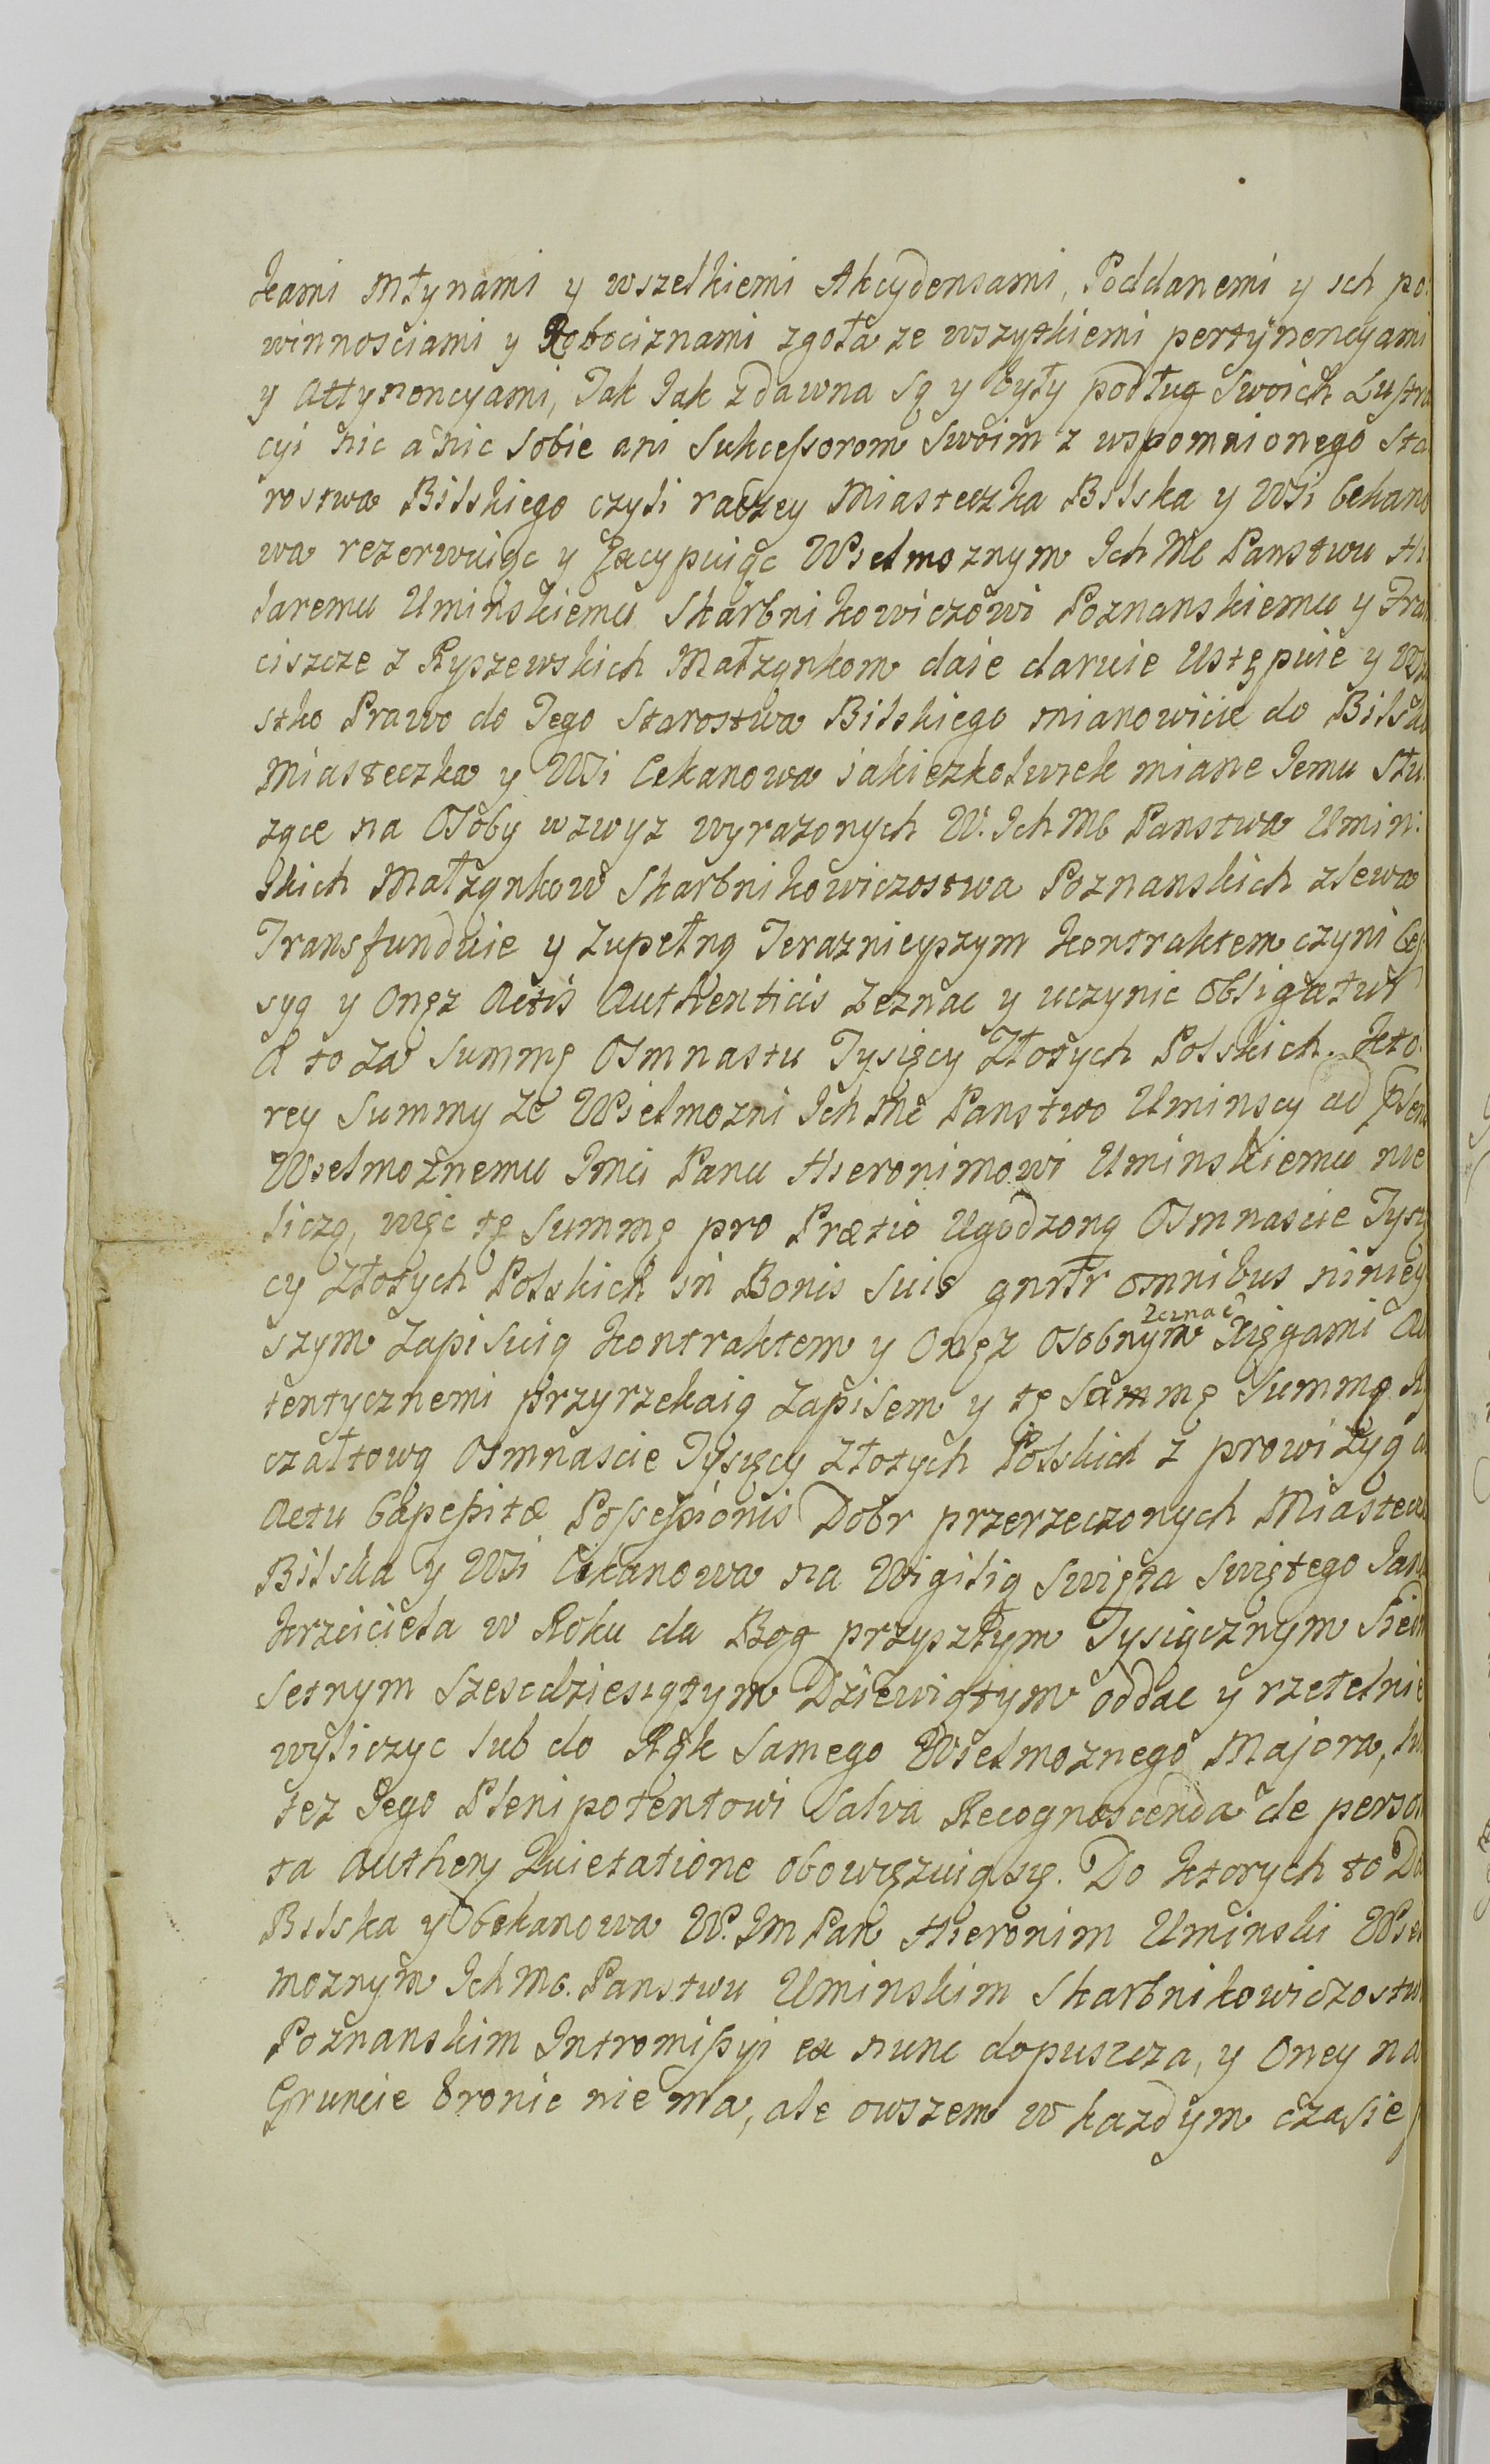 kami Młynami y wszelkiemi Akcydensami, Poddanemi y ich po
winnosciami y Robociznami zgoła ze wszytkiemi pertynencyami
y attynencyami, Tak Jak zdawna są y były podług Swoich Lustra
cyi nic a nic Sobie ani Sukcessorom Swoim z wspomnionego Sta
rostwa Bilskiego czyli raczey Miasteczka Bilska y Wsi Cekano
wa rezerwuiąc y Excypuiąc Wielmoznym Ich Mc Panstwu Hi
laremu Uminskiemu Skarbnikowiczowi Poznanskiemu y Fran
ciszcze z Ryszewskich Małząnkom daie daruie Ustępuie y Wszy
stko Prawo do Tego Starostwa Bilskiego mianowicie do Bilska
Miasteczka y Wsi Cekanowa iakiezkolwiek miane Jemu Słu
zące na Osoby wzwyz wyrazonych W. Ich Mc Panstwa Umin:
skich Małząnkow Skarbnikowiczostwa Poznanskich zlewa
Transfunduie y Zupełną Teraznieyszym Kontraktem czyni Ces
syą y Onęz Actis Authenticis Zeznac y uczynic obligatur
A to Za Summę Osmnastu Tysięcy Złotych Polskich. Kto
rey Summy Ze Wielmozni Ich Mc Panstwo Uminscy ad psens
Wielmoznemu Jmci Panu Hieronimowi Uminskiemu nie
liczą, więc tę Summę pro Prætio Ugodzoną Osmnascie Tysię
cy Złotych Polskich in Bonis Suis gnrlr omnibus niniey
szym Zapisuią Kontraktem y Onęz Osobnym Zeznać Xięgami Au
tentycznemi przyrzekaią Zapisem y tę Sammę Summę Ry
czałtową Osmnascie Tysięcy Złotych Polskich z prowizyą a
Actu Capessitæ Possessionis Dobr przerzeczonych Miastecz
Bilska y Wsi Cekanowa na Wigilią Swięta Swiętego Jana
Krzciciela w Roku da Bog przyszłym Tysiącznym Siedm
Setnym Szescdziesiątym Dziewiątym oddac y rzetelnie
wyliczyc lub do Rąk Samego Wielmoznego Majora, lu
tez Jego Plenipotentowi Salva Recognoscenda de perso
ta authen Quietatione obowięzuią się. Do ktorych to Do
Bilska y Cekanowa W. Jm Pan Hieronim Uminski Wiel
moznym Ich Mc. Panstwu Uminskim Skarbnikowiczostwu
Poznanskim Intromissyi ex nunc dopuszcza, y Oney na
Gruncie bronic nie ma, ale owszem w kazdym czasie